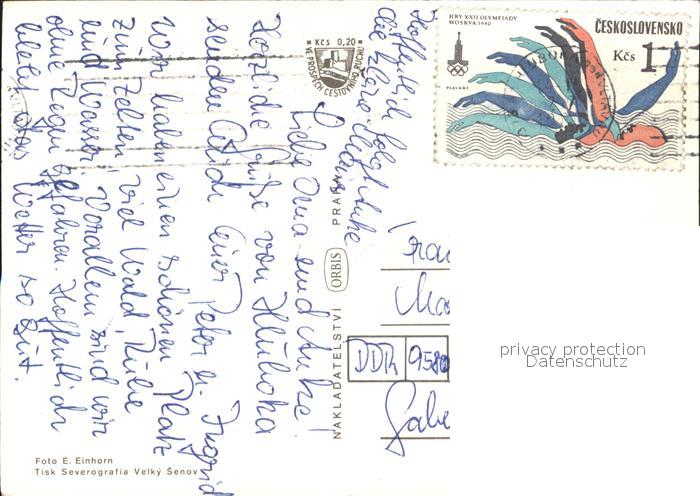 Kčs 0,20
VE PROSPĚCH CESTOVNÍHO RUCHU
HRY XXII. OLYMPIÁDY
MOSKVA 1980
ČESKOSLOVENSKO
Kčs 1
PLAVÁNÍ
Hoffentlich folgt
die
Liebe Oma und Anke!
Herzliche Grüße von Hluboka
senden Euch Eure Peter u. Ingrid
Wir haben einen schönen Platz
zum Zelten, viel Wald, Ruhe
und Wasser. Vorallem sind wir
ohne Regen gefahren. Hoffentlich
bleibt das Wetter so gut.
NAKLADATELSTVÍ ORBIS PRAHA
DDR 9580
privacy protection
Datenschutz
Foto E. Einhorn
Tisk Severografia Velký Šenov